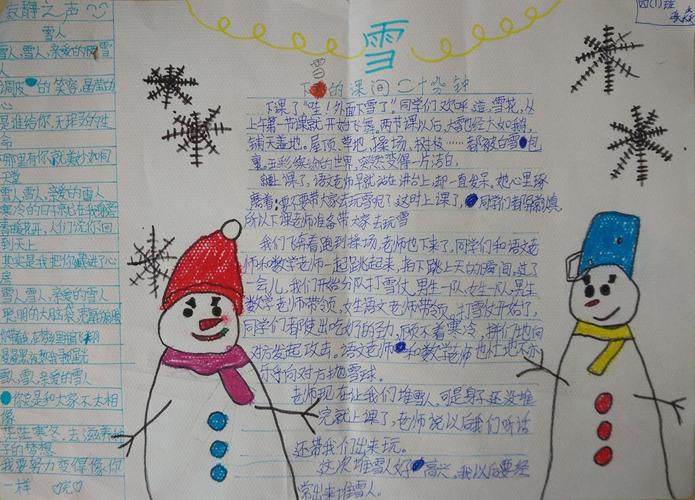 寂静之声
雪人
雪人,雪人,亲爱的
人
的笑容,晶莹的
心
是谁给你,无瑕的生
命
那里有你就美妙如同
天堂
雪人,雪人,亲爱的雪人
到天上
其实是我把你藏进了心
房
雪人,雪人,亲爱的雪人
雪人,亲爱的雪人
你总是和大家不太相
像
茫茫寒冬,去滋养
子的梦想
我要努力变得像你
一样
四(1)班
雪
下雪的课间二十分钟
下课了"哇!外面下雪了"同学们欢呼道,雪花,从
上午第一节课就开始飞舞,两节课以后,大如鹅
铺天盖地。屋顶、草地、操场、树枝……都被白雪包
裹,五彩缤纷的世界,突然变得一片洁白。
上课了,语文老师早就站在讲台上,却一直发呆,她心里琢
磨着:要不要带大家去玩雪呢?这时上课了,同学们都
所以下课老师准备带大家去玩雪
我们飞奔着跑到操场,老师也下来了,同学们和语文老
师和数学老师一起跳起来,拍下跳上天的瞬间,过了
一会儿,我们开始分队打雪仗,男生一队女生一队,男生
数学老师带领,女生语文老师带领,打雪仗开始了,
同学们都使出吃奶的劲,顾不着寒冷,拼命地向
对方发起攻击。语文老师和数学老师也忙地不亦
乐乎向对方抛雪球。
老师现在让我们堆雪人,可是身子还没堆
完就上课了,老师说以后我们听话
还带我们出来玩。
这次堆雪人好高兴,我以后要经
常出来堆雪人。